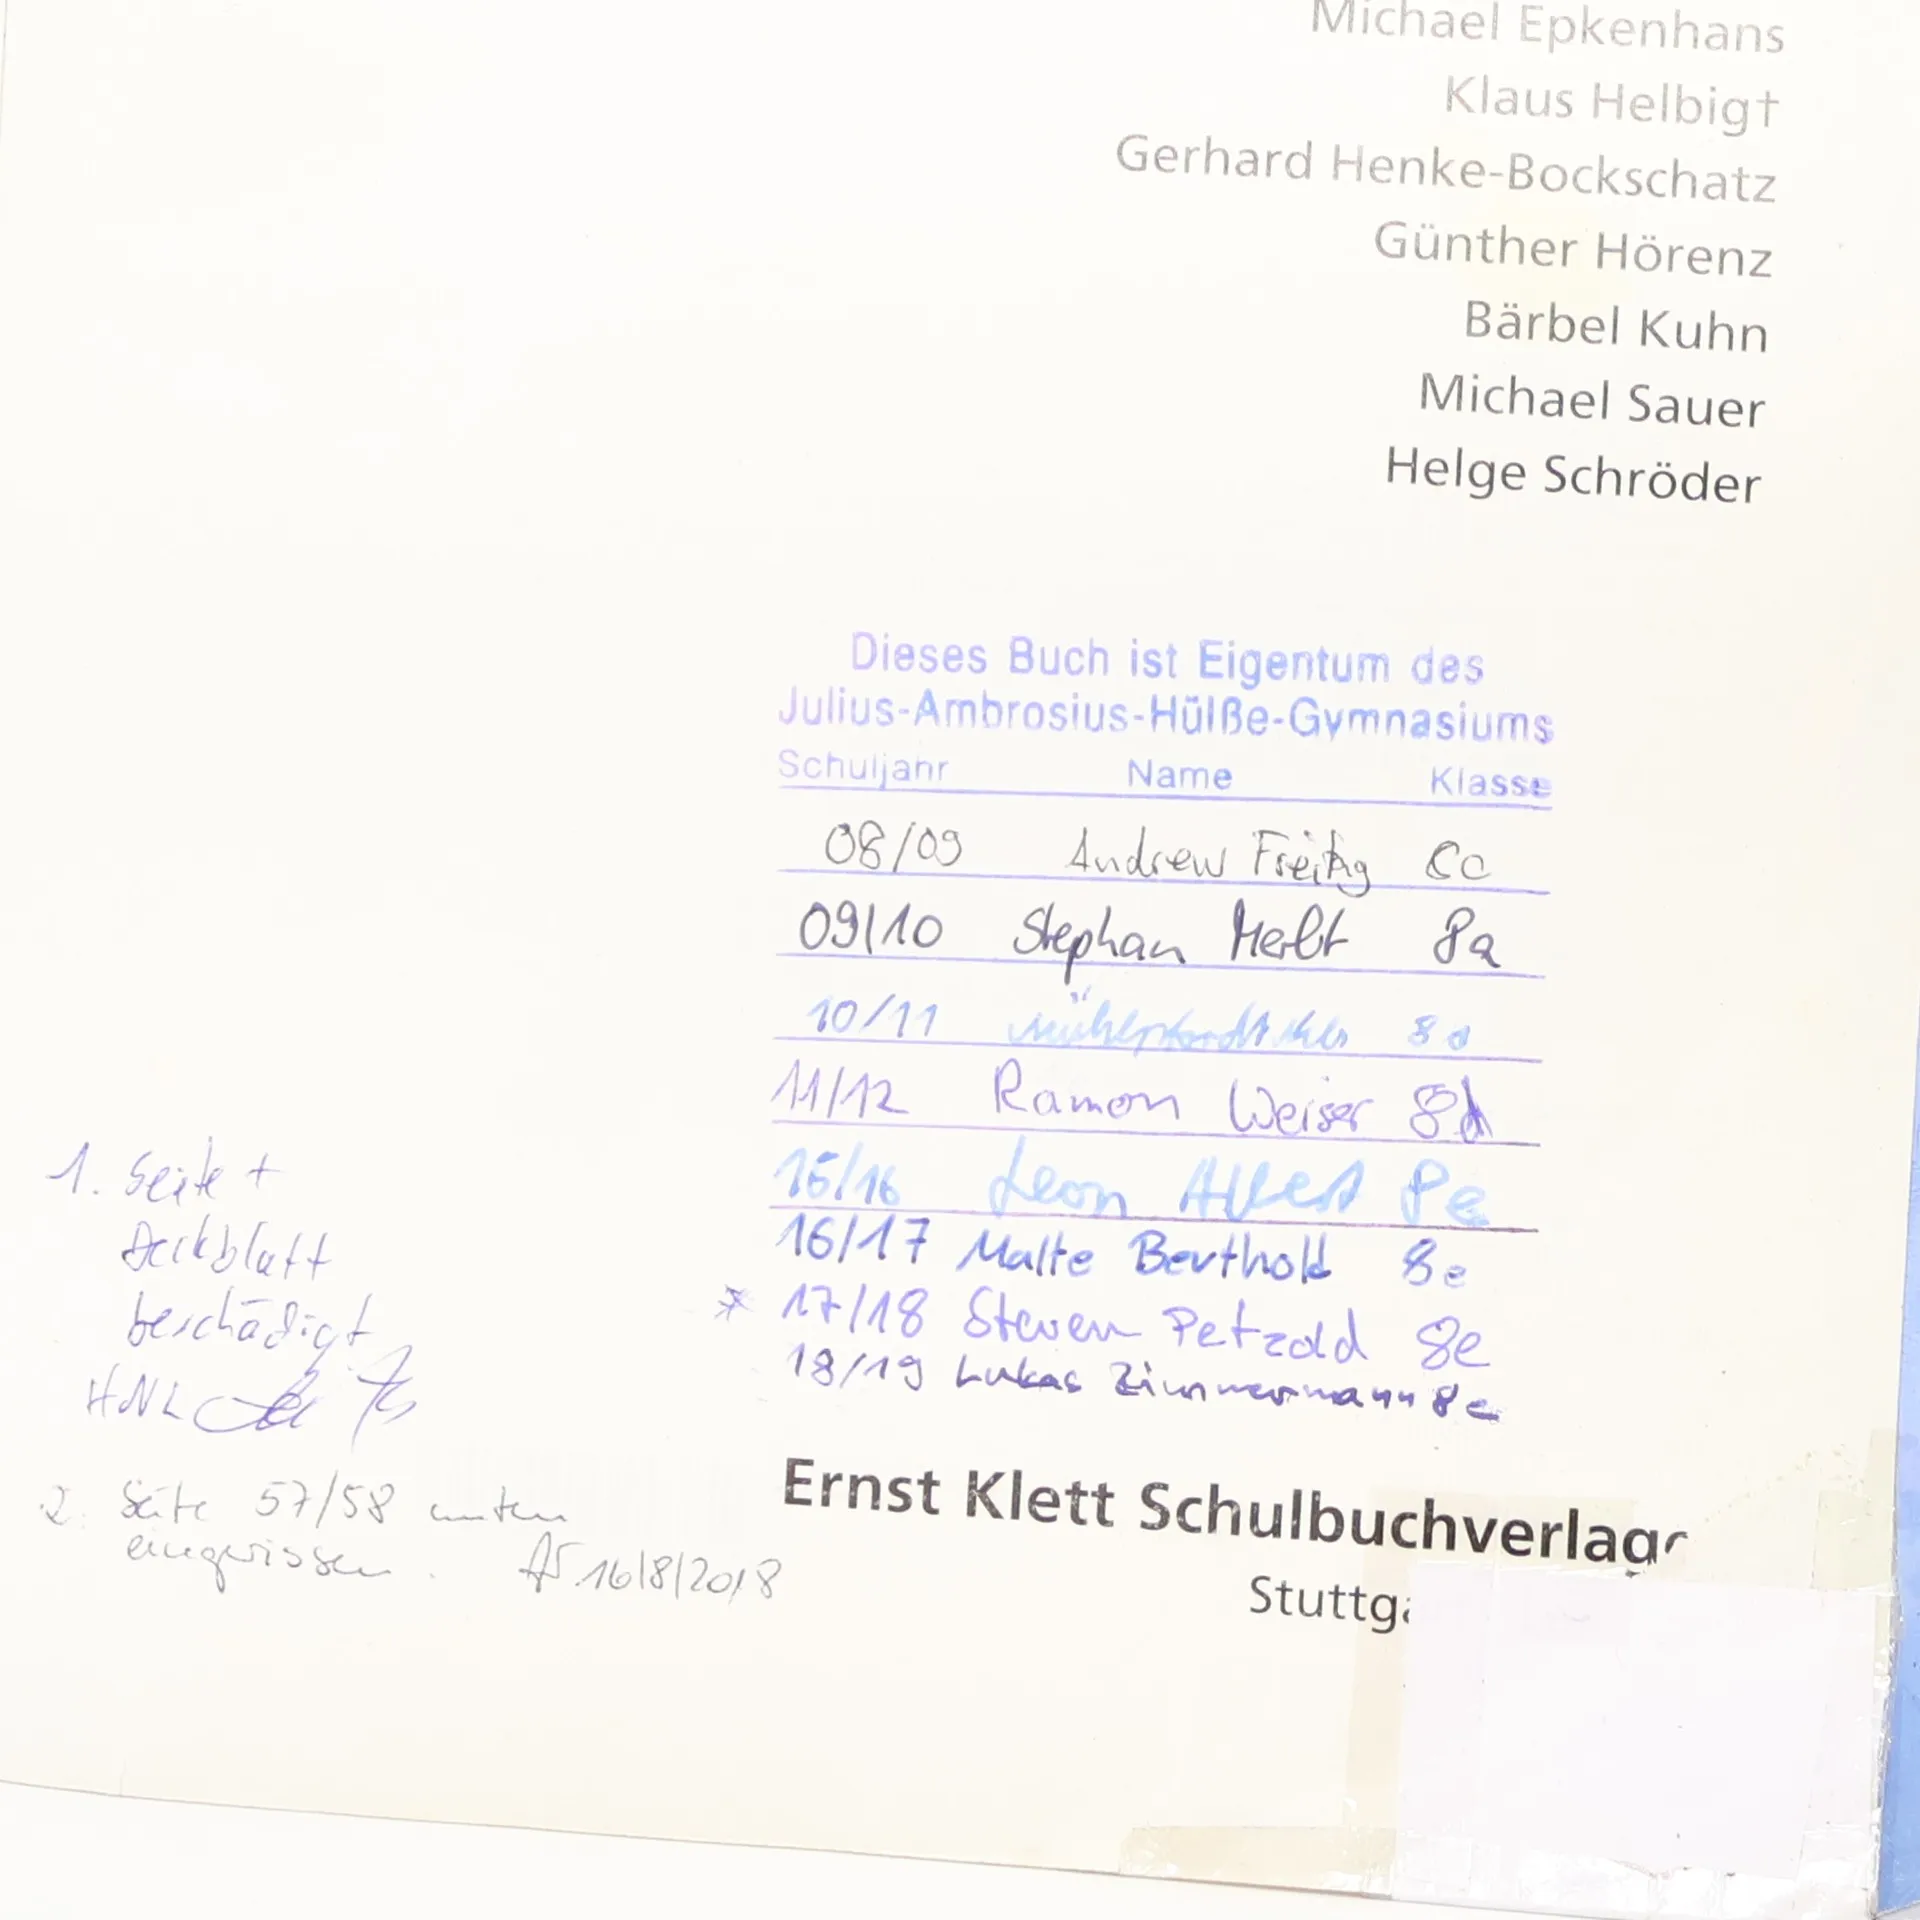 Michael Epkenhans
Klaus Helbig†
Gerhard Henke-Bockschatz
Günther Hörenz
Bärbel Kuhn
Michael Sauer
Helge Schröder
Dieses Buch ist Eigentum des
Julius-Ambrosius-Hülße-Gymnasiums
Schuljahr Name Klasse
08/09 Andrew Freitag
09/10 Stephan 8a
10/11
11/12 Ramon Weiser 8d
15/16 Leon Albert 8e
16/17 Malte Berthold 8e
* 17/18 Steven Petzold 8e
18/19 Lukas Zimmermann 8e
1. Seite +
Deckblatt
beschädigt
HNL
2. Seite 57/58 unten
eingerissen. 16/8/2018
Ernst Klett Schulbuchverlag
Stuttga